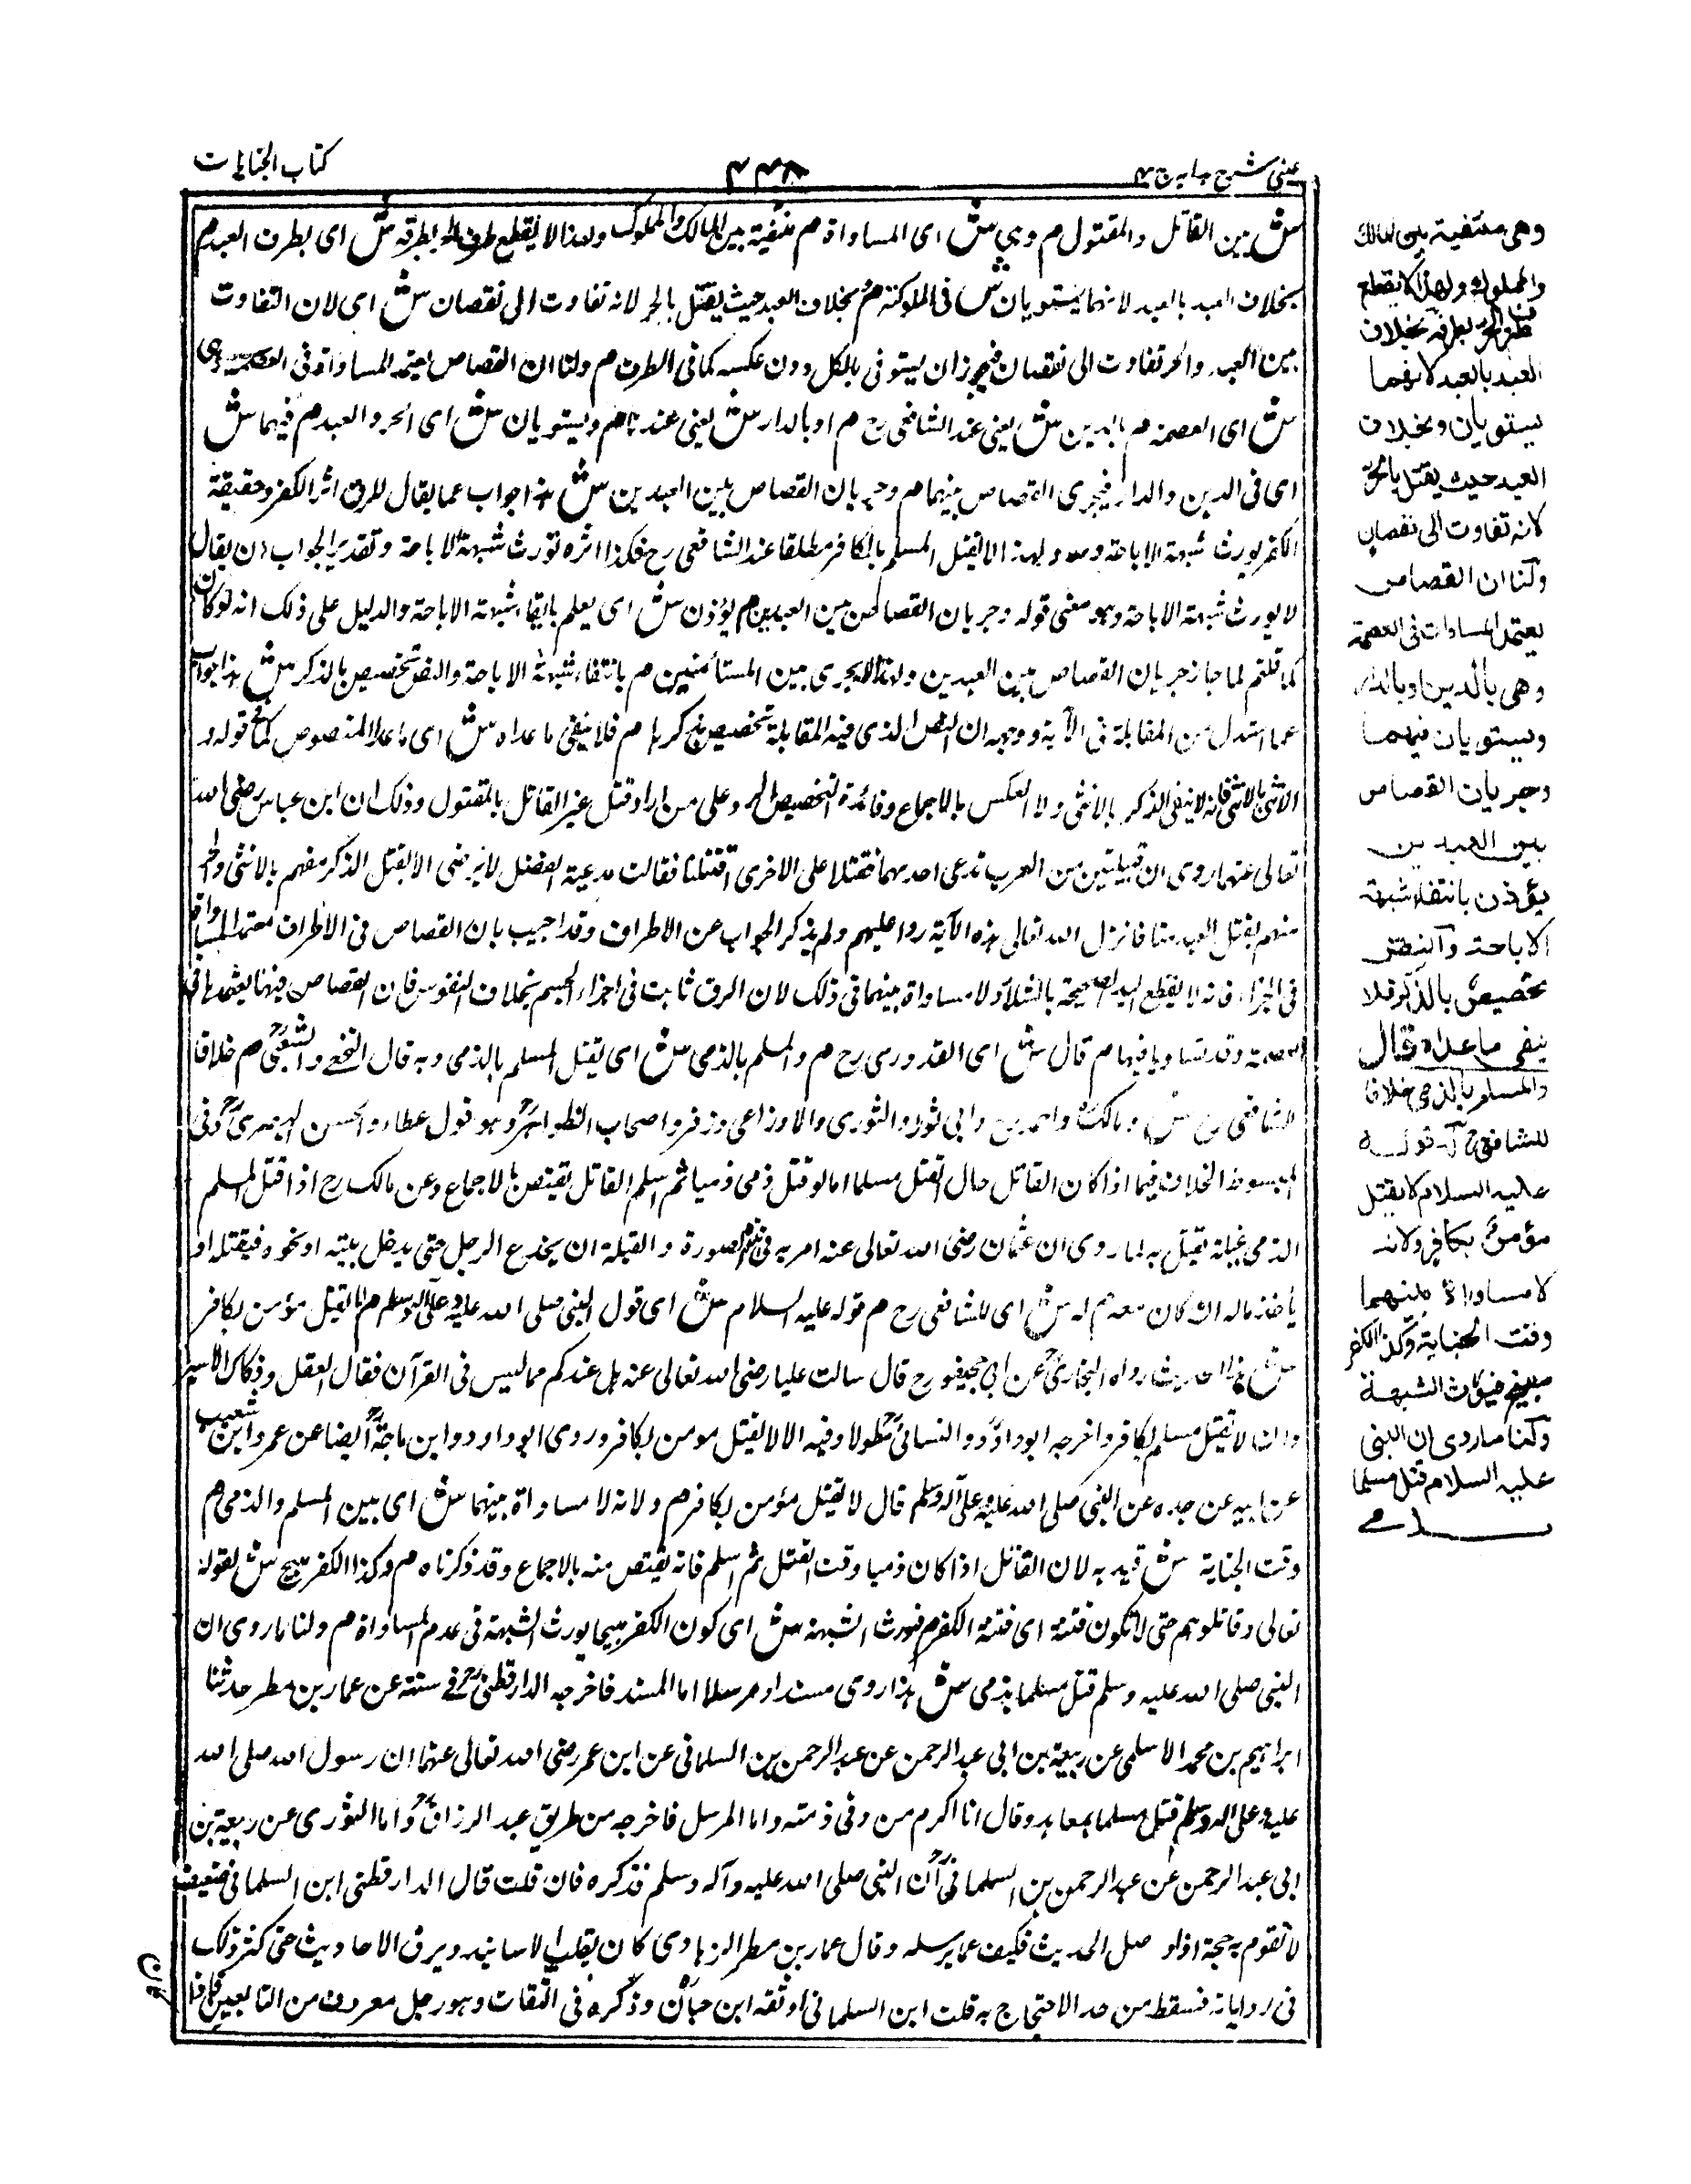 عینی شرح ہدایہ ج ۴
کتاب الجنایات
ش بین القاتل والمقتول م وہی ش ای المساواۃ م منتفیۃ بین المالک والمملوک ولہذا لا یقطع طرف الحر بطرفہ ش ای بطرف العبد م
بخلاف العبد بالعبد لانہما یستویان ش فی المملوکیۃ م بخلاف العبد حیث یقتل بالحر لانہ تفاوت الی نقصان ش ای لان التفاوت
بین العبد والحر تفاوت الی نقصان فیجوز ان یستوفی بالکل دون عکسہ کما فی الطرف م ولنا ان القصاص یعتمد المساواۃ فی العصمۃ وہی
ش ای العصمۃ م بالدین ش یعنی عند الشافعی رح م او بالدار ش یعنی عندنا م ویستویان ش ای الحر والعبد م فیہما ش
ای فی الدین والدار فیجری القصاص بینہما م وجریان القصاص بین العبدین ش ہذا جواب عما یقال للرق اثر الکفر وحقیقۃ
الکفر یورث شبہۃ الاباحۃ ولہذا لا یقتل المسلم بالکافر مطلقا عند الشافعی رح فکذا اثرہ تورث شبہۃ الاباحۃ وتقدیر الجواب ان یقال
لا یورث شبہۃ الاباحۃ وہو معنی قولہ وجریان القصاص بین العبدین م یؤذن ش ای یعلم بانتفاء شبہۃ الاباحۃ والدلیل علی ذلک انہ لو کان
کما قلتم لما جاز جریان القصاص بین العبدین ولہذا لا یجری بین المستأمنین م بانتفاء شبہۃ الاباحۃ والنص تخصیص بالذکر ش ہذا جواب
عما استدل من المقابلۃ فی الآیۃ ووجہہ ان النص الذی فیہ المقابلۃ تخصیص بذکرہا م فلا ینفی ما عداہ ش ای ما عدا المنصوص کما فی قولہ و
الانثی بالانثی فانہ لا ینفی الذکر بالانثی ولا العکس بالاجماع وفائدۃ التخصیص الرد علی من اراد قتل غیر القاتل بالمقتول وذلک ان ابن عباس رضی اللہ
تعالی عنہما روی ان قبیلتین من العرب تدعی احدہما فضلا علی الاخری اقتتلتا فقالت مدعیۃ الفضل لا نرضی الا بقتل الذکر منہم بالانثی والحر
منہم بقتل العبد منا فانزل اللہ تعالی ہذہ الآیۃ ردا علیہم ولم یذکر الجواب عن الاطراف وقد اجیب بان القصاص فی الاطراف معتمد المساواۃ
فی الجزاء فانہ لا یقطع الید الصحیحۃ بالشلاء ولا مساواۃ بینہما فی ذلک لان الرق ثابت فی اجزاء الجسم بخلاف النفوس فان القصاص فیہا یعتمدہا فی
العصمۃ وقد تساویا فیہا م قال ش ای القدوری رح م والمسلم بالذمی ش ای یقتل المسلم بالذمی وبہ قال النخعی والشعبی م خلافا
للشافعی رح ش ومالک واحمد رح وابی ثور والثوری والاوزاعی وزفر واصحاب الظواہر وہو قول عطاء والحسن البصری وفی
المبسوط الخلاف فیما اذا کان القاتل حال القتل مسلما اما لو قتل ذمی ذمیا ثم اسلم القاتل یقتص بالاجماع وعن مالک رح اذا قتل المسلم
الذمی غیلۃ یقتل بہ لما روی ان عثمان رضی اللہ تعالی عنہ امر بہ فی ہذہ الصورۃ والغیلۃ ان یخدع الرجل حتی یدخل بیتہ او نحوہ فیقتلہ او
یأخذ مالہ ان کان معہ م لہ ش ای للشافعی رح م قولہ علیہ السلام ش ای قول النبی صلی اللہ علیہ وعلی آلہ وسلم م لا یقتل مؤمن بکافر
ش ہذا الحدیث رواہ البخاری عن ابی جحیفۃ رح قال سالت علیا رضی اللہ تعالی عنہ ہل عندکم مما لیس فی القرآن فقال العقل وفکاک الاسیر
وان لا یقتل مسلم بکافر واخرجہ ابو داؤد والنسائی مطولا وفیہ الا لا یقتل مومن بکافر وروی ابو داود وابن ماجۃ ایضا عن عمرو ابن شعیب
عن ابیہ عن جدہ عن النبی صلی اللہ علیہ وعلی آلہ وسلم قال لا یقتل مؤمن بکافر م ولانہ لا مساواۃ بینہما ش ای بین المسلم والذمی م
وقت الجنایۃ ش قید بہ لان القاتل اذا کان ذمیا وقت القتل ثم اسلم فانہ یقتص منہ بالاجماع وقد ذکرناہ م وکذا الکفر مبیح ش لقولہ
تعالی وقاتلوہم حتی لا تکون فتنۃ ای فتنۃ الکفر م فیورث الشبہۃ ش ای کون الکفر مبیحا یورث الشبہۃ فی عدم المساواۃ م ولنا ما روی ان
النبی صلی اللہ علیہ وسلم قتل مسلما بذمی ش ہذا روی مسندا ومرسلا اما المسند فاخرجہ الدارقطنی فی سننہ عن عمار بن مطر حدثنا
ابراہیم بن محمد الاسلمی عن ربیعۃ بن ابی عبد الرحمن عن عبد الرحمن بن السلمانی عن ابن عمر رضی اللہ تعالی عنہما ان رسول اللہ صلی اللہ
علیہ وعلی آلہ وسلم قتل مسلما بمعاہد وقال انا اکرم من وفی ذمتہ واما المرسل فاخرجہ من طریق عبد الرزاق واما الثوری عن ربیعۃ بن
ابی عبد الرحمن عن عبد الرحمن بن السلمانی ان النبی صلی اللہ علیہ وآلہ وسلم فذکرہ فان قلت قال الدارقطنی ابن السلمانی ضعیف
لا تقوم بہ حجۃ اذا وصل الحدیث فکیف عما یرسلہ وقال عمار بن مطر الرہاوی کان یقلب الاسانید ویسرق الاحادیث حتی کثر ذلک
فی روایاتہ فسقط من حد الاحتجاج بہ قلت ابن السلمانی وثقہ ابن حبان وذکرہ فی الثقات وہو رجل معروف من التابعین
وهی منتفیة بین المالک
والمملوک ولهذا لا یقطع
طرف الحر بطرفه بخلاف
العبد بالعبد لانهما
یستویان وبخلاف
العبد حیث یقتل بالحر
لانه تفاوت الی نقصان
ولنا ان القصاص
یعتمد المساوات فی العصمة
وهی بالدین او بالدار
ویستویان فیهما
وجریان القصاص
بین العبدین
یؤذن بانتفاء شبهة
الاباحة والنص
تخصیص بالذکر فلا
ینفی ما عداه قال
والمسلم بالذمی خلافا
للشافعی له قوله
علیه السلام لا یقتل
مؤمن بکافر ولانه
لا مساواة بینهما
وقت الجنایة وکذا الکفر
مبیح فیورث الشبهة
ولنا ما روی ان النبی
علیه السلام قتل مسلما